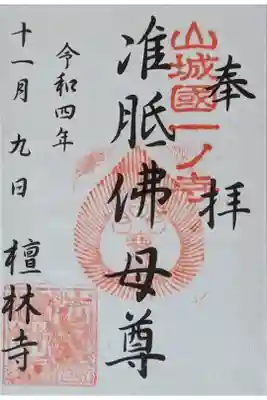 奉拝
山城國一ノ
准胝佛母尊
令和四年
十一月九日
檀林寺